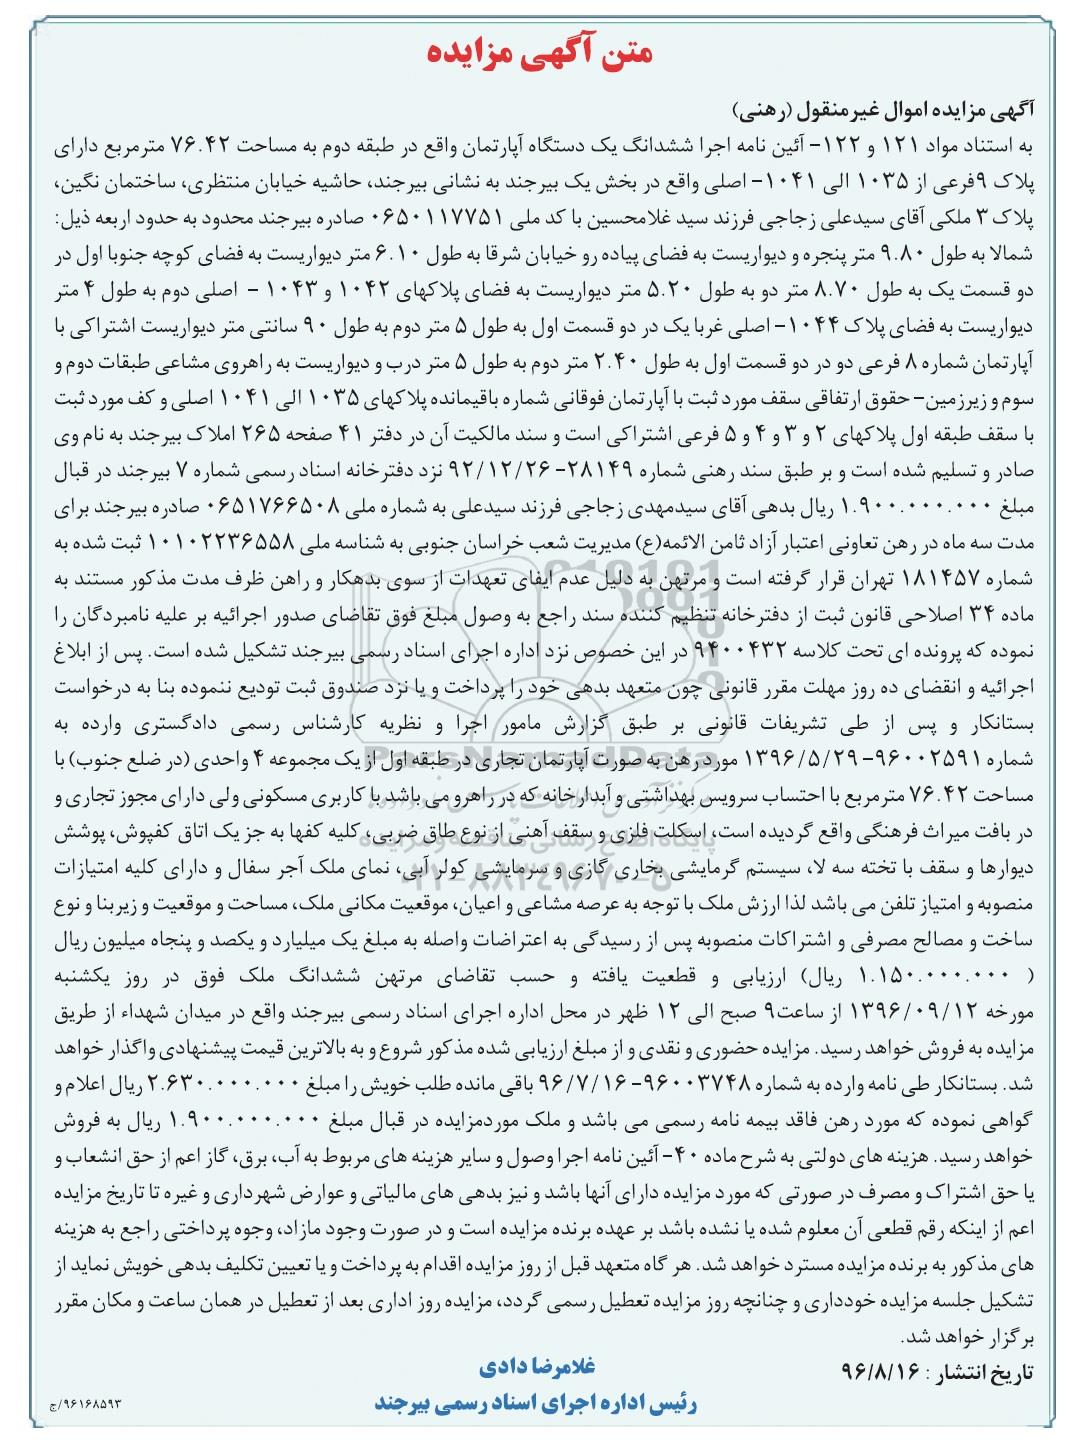 متن آگهی مزایده
آگهی مزایده اموال غیرمنقول (رهنی)
به استناد مواد ۱۲۱ و ۱۲۲- آئین نامه اجرا ششدانگ یک دستگاه آپارتمان واقع در طبقه دوم به مساحت ۷۶.۴۲ مترمربع دارای
پلاک ۹فرعی از ۱۰۳۵ الی ۱۰۴۱- اصلی واقع در بخش یک بیرجند به نشانی بیرجند، حاشیه خیابان منتظری، ساختمان نگین،
پلاک ۳ ملکی آقای سیدعلی زجاجی فرزند سید غلامحسین با کد ملی ۰۶۵۰۱۱۷۷۵۱ صادره بیرجند محدود به حدود اربعه ذیل:
شمالا به طول ۹.۸۰ متر پنجره و دیواریست به فضای پیاده رو خیابان شرقا به طول ۶.۱۰ متر دیواریست به فضای کوچه جنوبا اول در
دو قسمت یک به طول ۸.۷۰ متر دو به طول ۵.۲۰ متر دیواریست به فضای پلاکهای ۱۰۴۲ و ۱۰۴۳ - اصلی دوم به طول ۴ متر
دیواریست به فضای پلاک ۱۰۴۴- اصلی غربا یک در دو قسمت اول به طول ۵ متر دوم به طول ۹۰ سانتی متر دیواریست اشتراکی با
آپارتمان شماره ۸ فرعی دو در دو قسمت اول به طول ۲.۴۰ متر دوم به طول ۵ متر درب و دیواریست به راهروی مشاعی طبقات دوم و
سوم و زیرزمین- حقوق ارتفاقی سقف مورد ثبت با آپارتمان فوقانی شماره باقیمانده پلاکهای ۱۰۳۵ الی ۱۰۴۱ اصلی و کف مورد ثبت
با سقف طبقه اول پلاکهای ۲ و ۳ و ۴ و ۵ فرعی اشتراکی است و سند مالکیت آن در دفتر ۴۱ صفحه ۲۶۵ املاک بیرجند به نام وی
صادر و تسلیم شده است و بر طبق سند رهنی شماره ۲۸۱۴۹- ۹۲/۱۲/۲۶ نزد دفترخانه اسناد رسمی شماره ۷ بیرجند در قبال
مبلغ ۱.۹۰۰.۰۰۰.۰۰۰ ریال بدهی آقای سیدمهدی زجاجی فرزند سیدعلی به شماره ملی ۰۶۵۱۷۶۶۵۰۸ صادره بیرجند برای
مدت سه ماه در رهن تعاونی اعتبار آزاد ثامن الائمه(ع) مدیریت شعب خراسان جنوبی به شناسه ملی ۱۰۱۰۲۲۳۶۵۵۸ ثبت شده به
شماره ۱۸۱۴۵۷ تهران قرار گرفته است و مرتهن به دلیل عدم ایفای تعهدات از سوی بدهکار و راهن ظرف مدت مذکور مستند به
ماده ۳۴ اصلاحی قانون ثبت از دفترخانه تنظیم کننده سند راجع به وصول مبلغ فوق تقاضای صدور اجرائیه بر علیه نامبردگان را
نموده که پرونده ای تحت کلاسه ۹۴۰۰۴۳۲ در این خصوص نزد اداره اجرای اسناد رسمی بیرجند تشکیل شده است. پس از ابلاغ
اجرائیه و انقضای ده روز مهلت مقرر قانونی چون متعهد بدهی خود را پرداخت و یا نزد صندوق ثبت تودیع ننموده بنا به درخواست
بستانکار و پس از طی تشریفات قانونی بر طبق گزارش مامور اجرا و نظریه کارشناس رسمی دادگستری وارده به
شماره ۹۶۰۰۲۵۹۱- ۱۳۹۶/۵/۲۹ مورد رهن به صورت آپارتمان تجاری در طبقه اول از یک مجموعه ۴ واحدی (در ضلع جنوب) با
مساحت ۷۶.۴۲ مترمربع با احتساب سرویس بهداشتی و آبدارخانه که در راهرو می باشد با کاربری مسکونی ولی دارای مجوز تجاری و
در بافت میراث فرهنگی واقع گردیده است، اسکلت فلزی و سقف آهنی از نوع طاق ضربی، کلیه کفها به جز یک اتاق کفپوش، پوشش
دیوارها و سقف با تخته سه لا، سیستم گرمایشی بخاری گازی و سرمایشی کولر آبی، نمای ملک آجر سفال و دارای کلیه امتیازات
منصوبه و امتیاز تلفن می باشد لذا ارزش ملک با توجه به عرصه مشاعی و اعیان، موقعیت مکانی ملک، مساحت و موقعیت و زیربنا و نوع
ساخت و مصالح مصرفی و اشتراکات منصوبه پس از رسیدگی به اعتراضات واصله به مبلغ یک میلیارد و یکصد و پنجاه میلیون ریال
( ۱.۱۵۰.۰۰۰.۰۰۰ ریال) ارزیابی و قطعیت یافته و حسب تقاضای مرتهن ششدانگ ملک فوق در روز یکشنبه
مورخه ۱۳۹۶/۰۹/۱۲ از ساعت۹ صبح الی ۱۲ ظهر در محل اداره اجرای اسناد رسمی بیرجند واقع در میدان شهداء از طریق
مزایده به فروش خواهد رسید. مزایده حضوری و نقدی و از مبلغ ارزیابی شده مذکور شروع و به بالاترین قیمت پیشنهادی واگذار خواهد
شد. بستانکار طی نامه وارده به شماره ۹۶۰۰۳۷۴۸- ۹۶/۷/۱۶ باقی مانده طلب خویش را مبلغ ۲.۶۳۰.۰۰۰.۰۰۰ ریال اعلام و
گواهی نموده که مورد رهن فاقد بیمه نامه رسمی می باشد و ملک موردمزایده در قبال مبلغ ۱.۹۰۰.۰۰۰.۰۰۰ ریال به فروش
خواهد رسید. هزینه های دولتی به شرح ماده ۴۰- آئین نامه اجرا وصول و سایر هزینه های مربوط به آب، برق، گاز اعم از حق انشعاب و
یا حق اشتراک و مصرف در صورتی که مورد مزایده دارای آنها باشد و نیز بدهی های مالیاتی و عوارض شهرداری و غیره تا تاریخ مزایده
اعم از اینکه رقم قطعی آن معلوم شده یا نشده باشد بر عهده برنده مزایده است و در صورت وجود مازاد، وجوه پرداختی راجع به هزینه
های مذکور به برنده مزایده مسترد خواهد شد. هر گاه متعهد قبل از روز مزایده اقدام به پرداخت و یا تعیین تکلیف بدهی خویش نماید از
تشکیل جلسه مزایده خودداری و چنانچه روز مزایده تعطیل رسمی گردد، مزایده روز اداری بعد از تعطیل در همان ساعت و مکان مقرر
برگزار خواهد شد.
تاریخ انتشار : ۹۶/۸/۱۶
غلامرضا دادی
رئیس اداره اجرای اسناد رسمی بیرجند
۹۶۱۶۸۵۹۳/ج
ParsNamadData
پایگاه اطلاع رسانی مناقصه و مزایده
۰۲۱-۸۸۳۴۹۶۷۰-۵